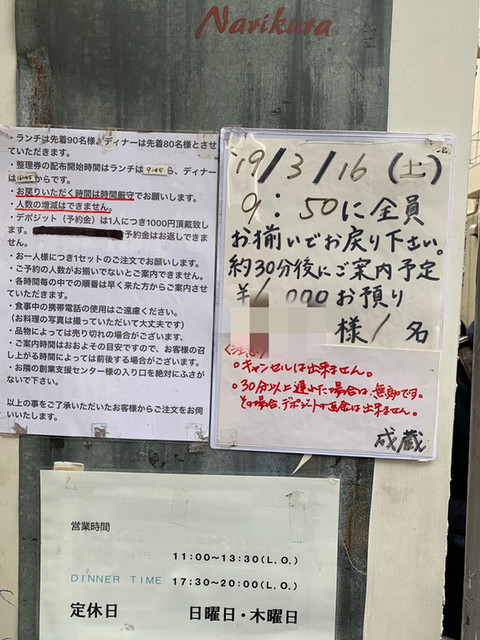 Narikura
・ランチは先着90名様、ディナーは先着80名様とさせ
ていただきます。
・整理券の配布開始時間はランチは9:45、ディナー
は からです。
・お戻りいただく時間は時間厳守でお願いします。
・人数の増減はできません。
・デポジット（予約金）は1人につき1000円頂戴致し
ます。 予約金はお返しでき
ません。
・お一人様につき1セットのご注文でお願いします。
・ご予約の人数がお揃いでないとご案内できません。
・各時間毎の中での順番は早く来た方からご案内させ
ていただきます。
・食事中の携帯電話の使用はご遠慮ください。
（お料理の写真は撮っていただいて大丈夫です）
・品物によっては売り切れの場合がございます。
・ご案内時間はおおよその目安ですので、お客様の召
し上がる時間によっては前後する場合がございます。
・お隣の創業支援センター様の入り口を絶対にふさが
ないで下さい。
以上の事をご了承いただいたお客様からご注文をお伺
いいたします。
'19/3/16（土）
9：50に全員
お揃いでお戻り下さい。
約30分後にご案内予定
¥1,000お預り
様1名
〈注意〉
○キャンセルは出来ません。
○30分以上遅れた場合は無効です。
その場合、デポジットの返金は出来ません。
成蔵
営業時間
11:00～13:30(L.O.)
DINNER TIME 17:30～20:00(L.O.)
定休日 日曜日・木曜日